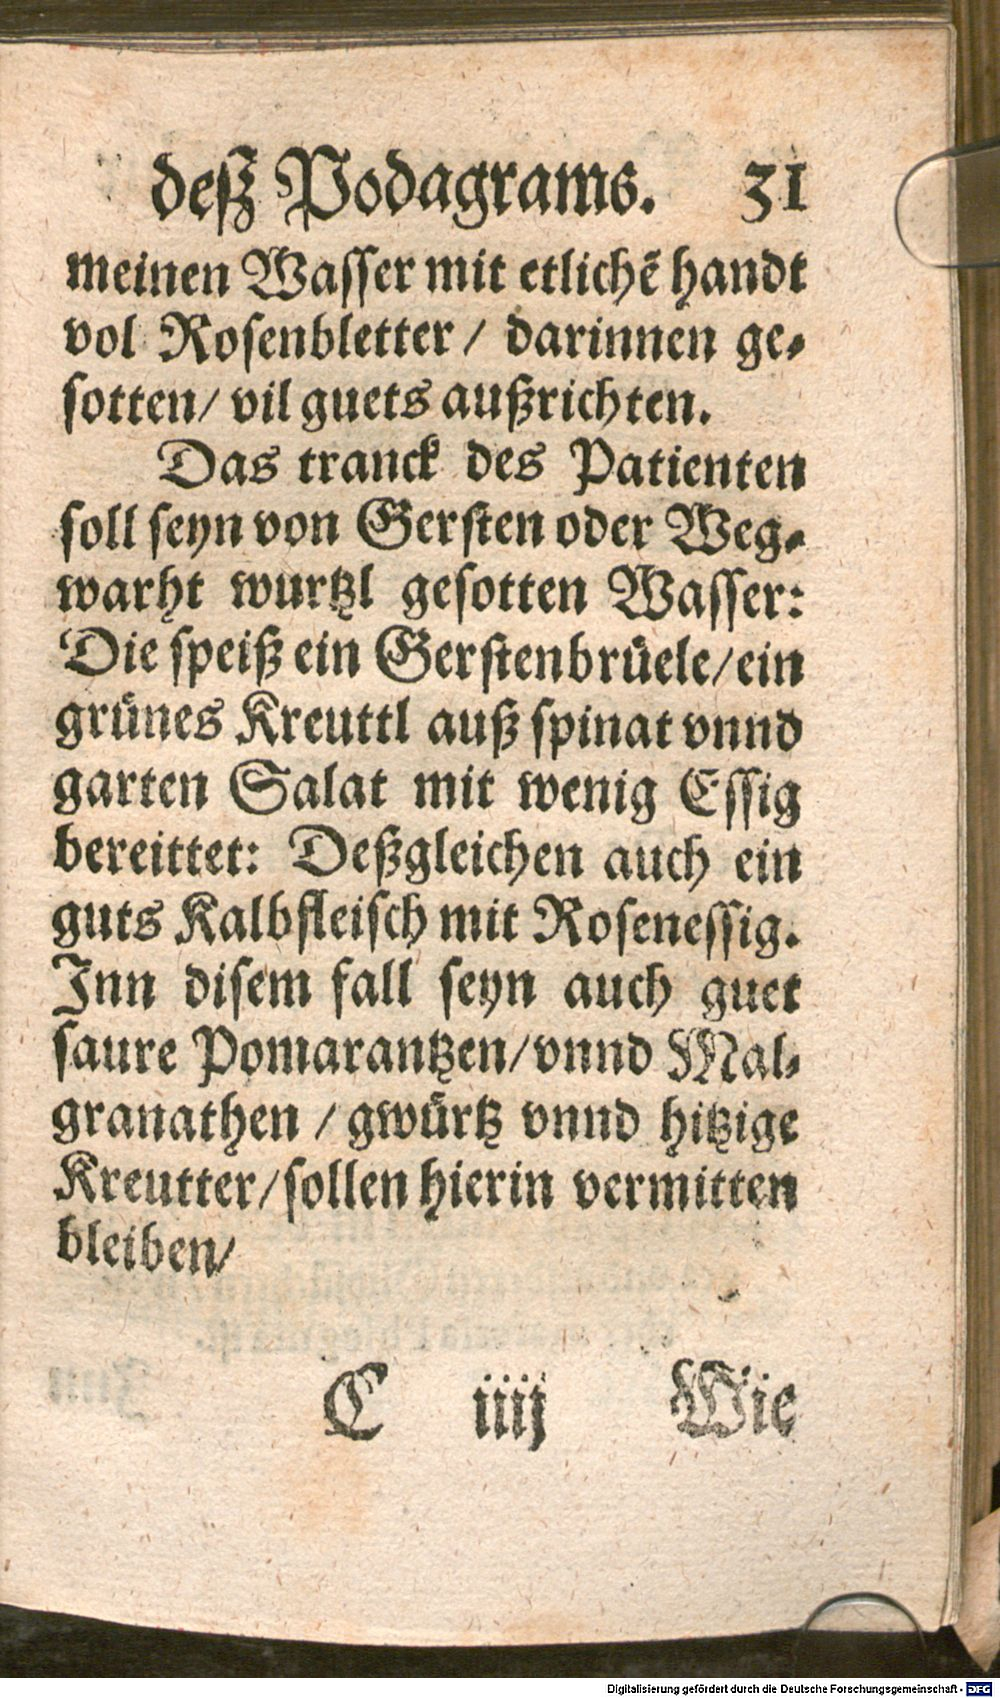 deß Podagrams. 31
meinen Wasser mit etlichẽ handt
vol Rosenbletter / darinnen ge-
sotten/ vil guets außrichten.
Das tranck des Patienten
soll seyn von Gersten oder Weg-
warht wurtzl gesotten Wasser:
Die speiß ein Gerstenbrüele/ein
grünes Kreuttl auß spinat vnnd
garten Salat mit wenig Essig
bereittet: Deßgleichen auch ein
guts Kalbfleisch mit Rosenessig.
Inn disem fall seyn auch guet
saure Pomarantzen/vnnd Mal-
granathen / gwürtz vnnd hitzige
Kreutter/sollen hierin vermitten
bleiben/
C iiij Wie
Digitalisierung gefördert durch die Deutsche Forschungsgemeinschaft - DFG